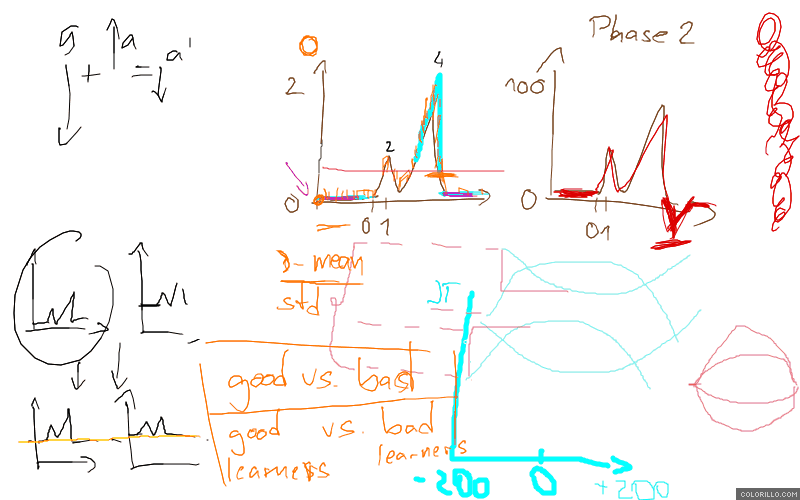 g + a = a'
Phase 2
4
2
2
0
0 1
100
0
0 1
x - mean
std
JT
good vs. bad
good vs. bad
learners learners
-200 0 +200
COLORILLO.COM